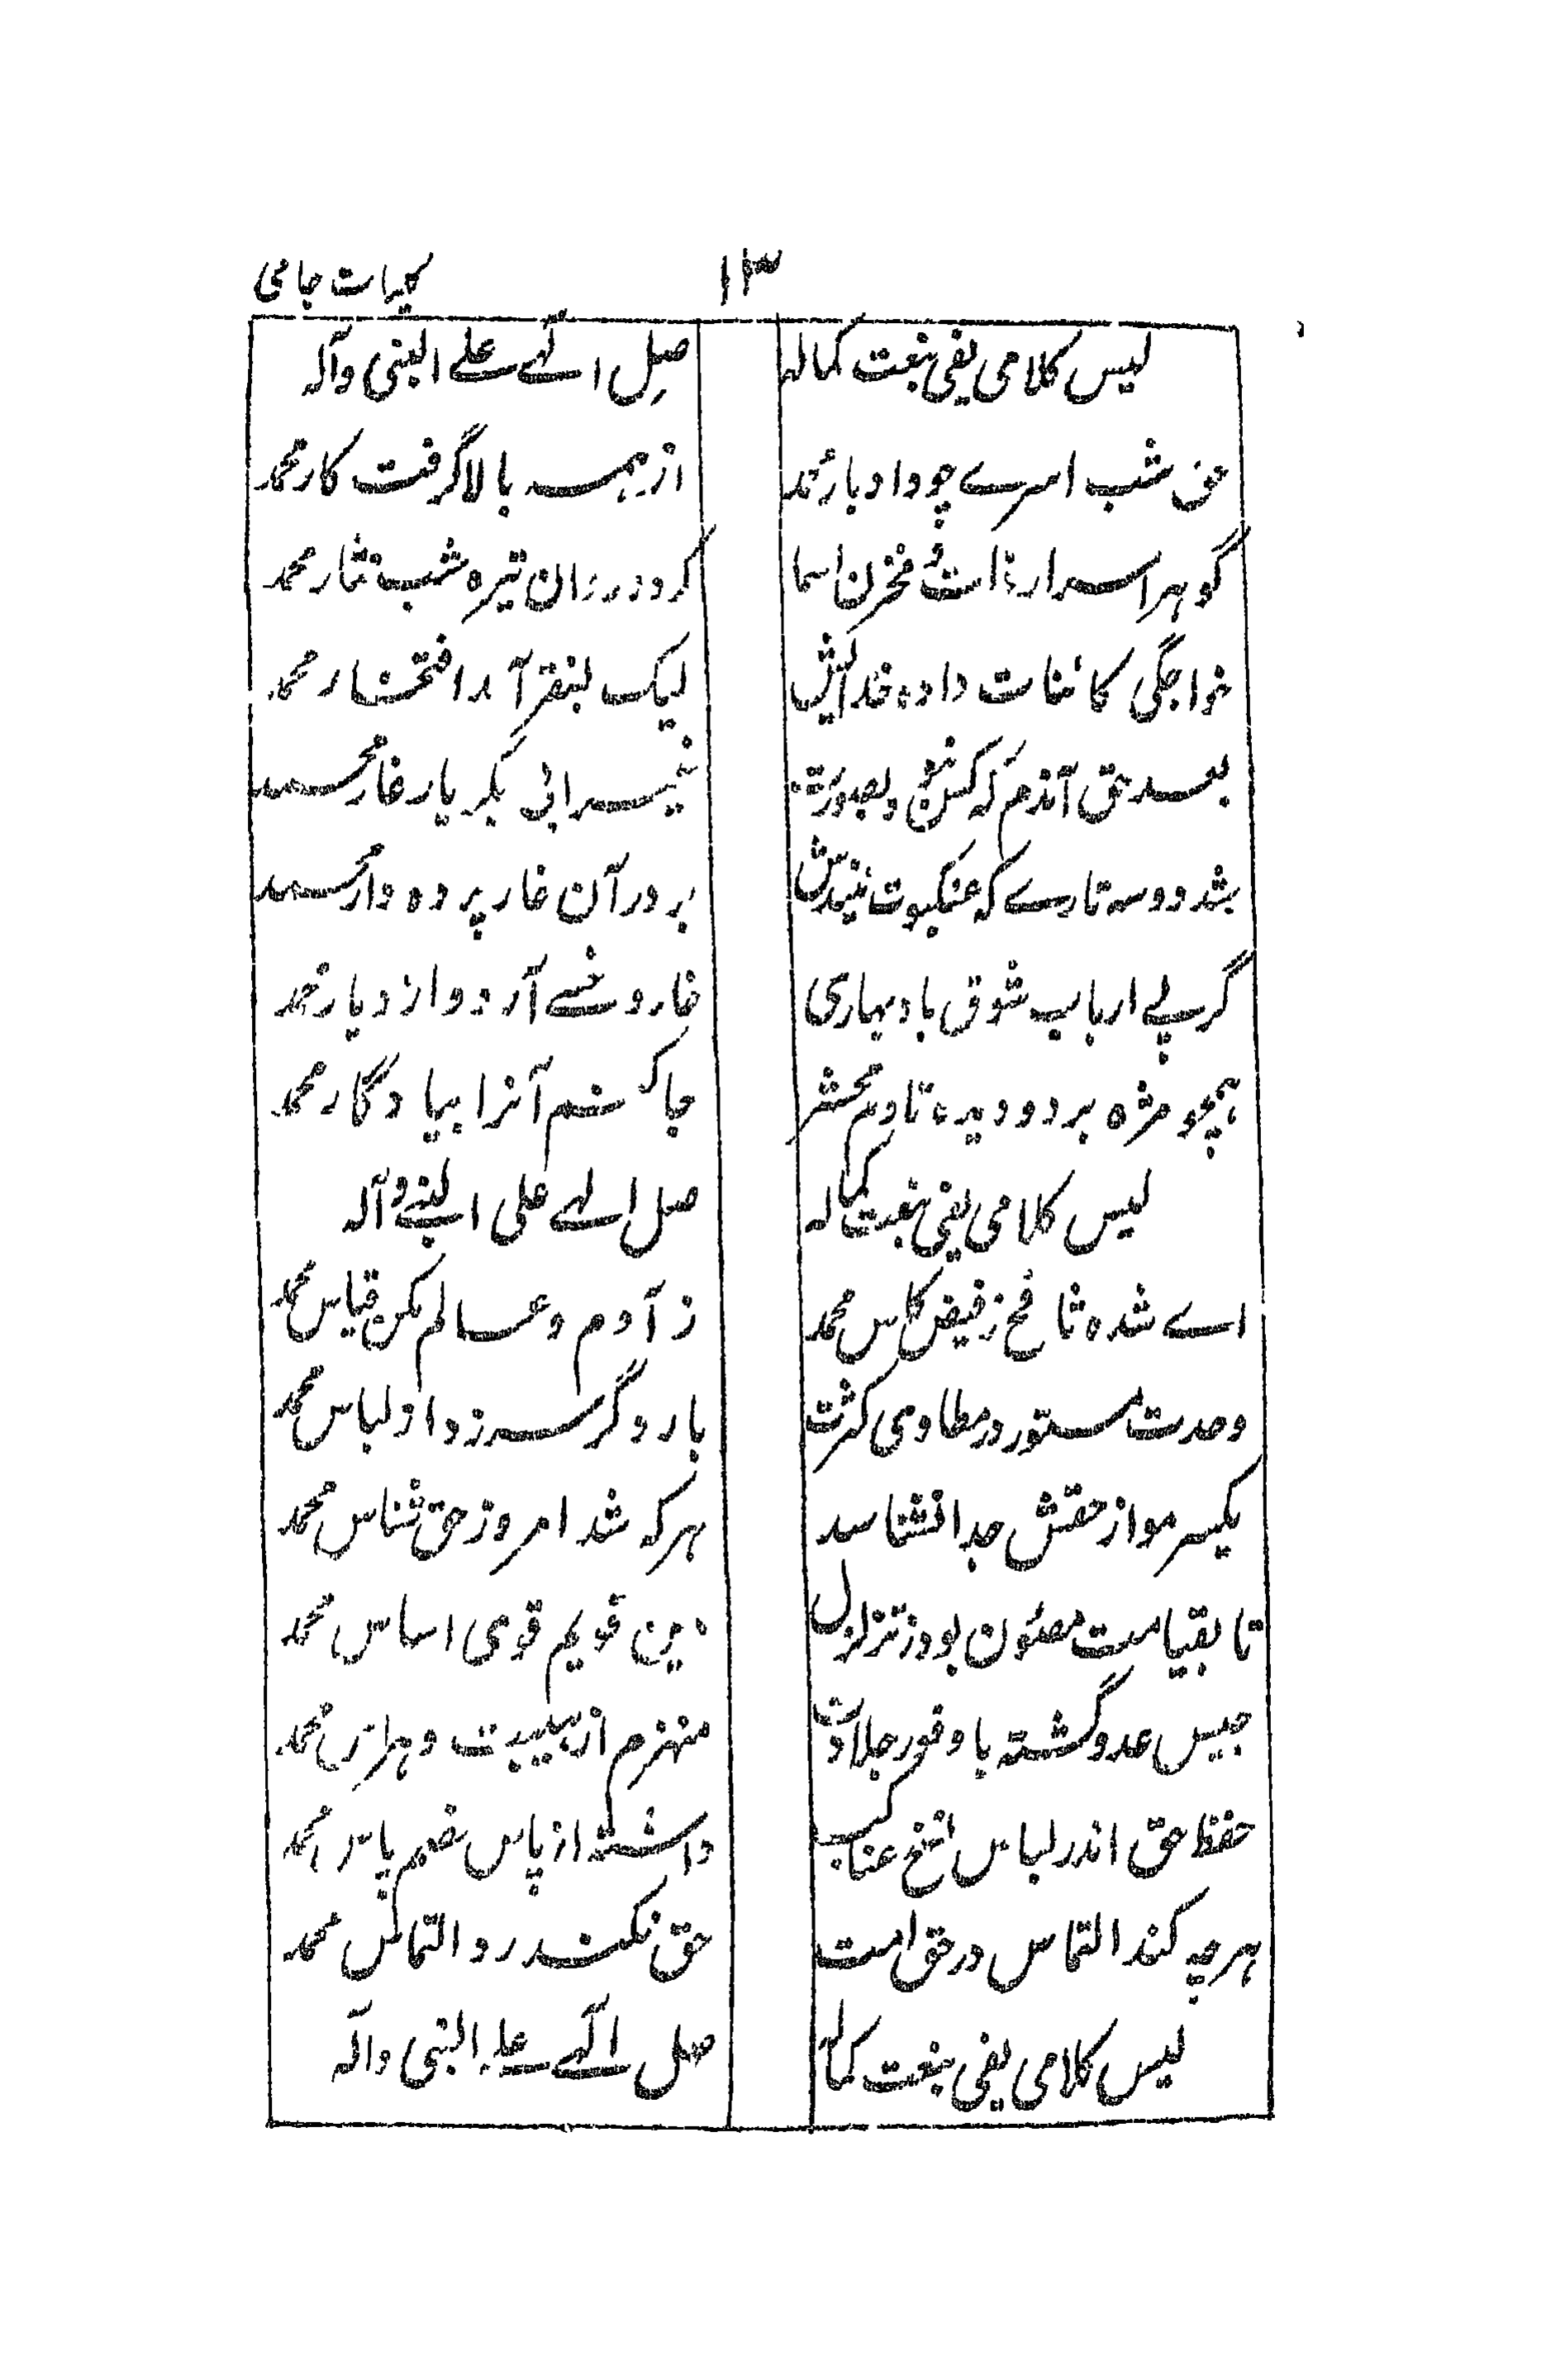 ۱۳ کلیات جامی
لیس کلامی یفی بنعت کماله صلِ الٰهے علے النبی وآله
حق شب اسرے چو داد بار محمد از همه بالا گرفت کار محمد
گوهر اسرار ذات مخزن اسما کرد در ان تیره شب نثار محمد
خواجگی کائنات داده خدایش لیک بفقر آمد افتخار محمد
بعد حق آندم که کس نبود بصورت غیر ابی بکر یار غار محمد
شد دو سه تارے که عنکبوت تنیدش بر در آن غار پرده دار محمد
گر پے ارباب شوق باد بهاری خار و خسے آرد از دیار محمد
همچو مژه بر دو دیده تا دم محشر جا کنم آنرا بیادگار محمد
لیس کلامی یفی بنعت کماله صل الهے علی النبے وآله
اے شده شافع ز فیض کاس محمد ز آدم و عالم مکن قیاس محمد
وحدت مستور در مطاوی کثرت بار دگر سر زد از لباس محمد
یکسر مو از حقش جدا نشناسد هر که شد امروز حق شناس محمد
تا بقیامت مصئون بود ز تزلزل دین قویم قوی اساس محمد
جیس عدو گشته با وفور جلادت منهزم از هیبت و هراس محمد
حفظ حق اندر لباس نسج عناکب داشته از پاس خصم پاس محمد
هر چه کند التماس در حق امت حق نکند رد التماس محمد
لیس کلامی یفی بنعت کماله صل الٰهے علے النبی وآله